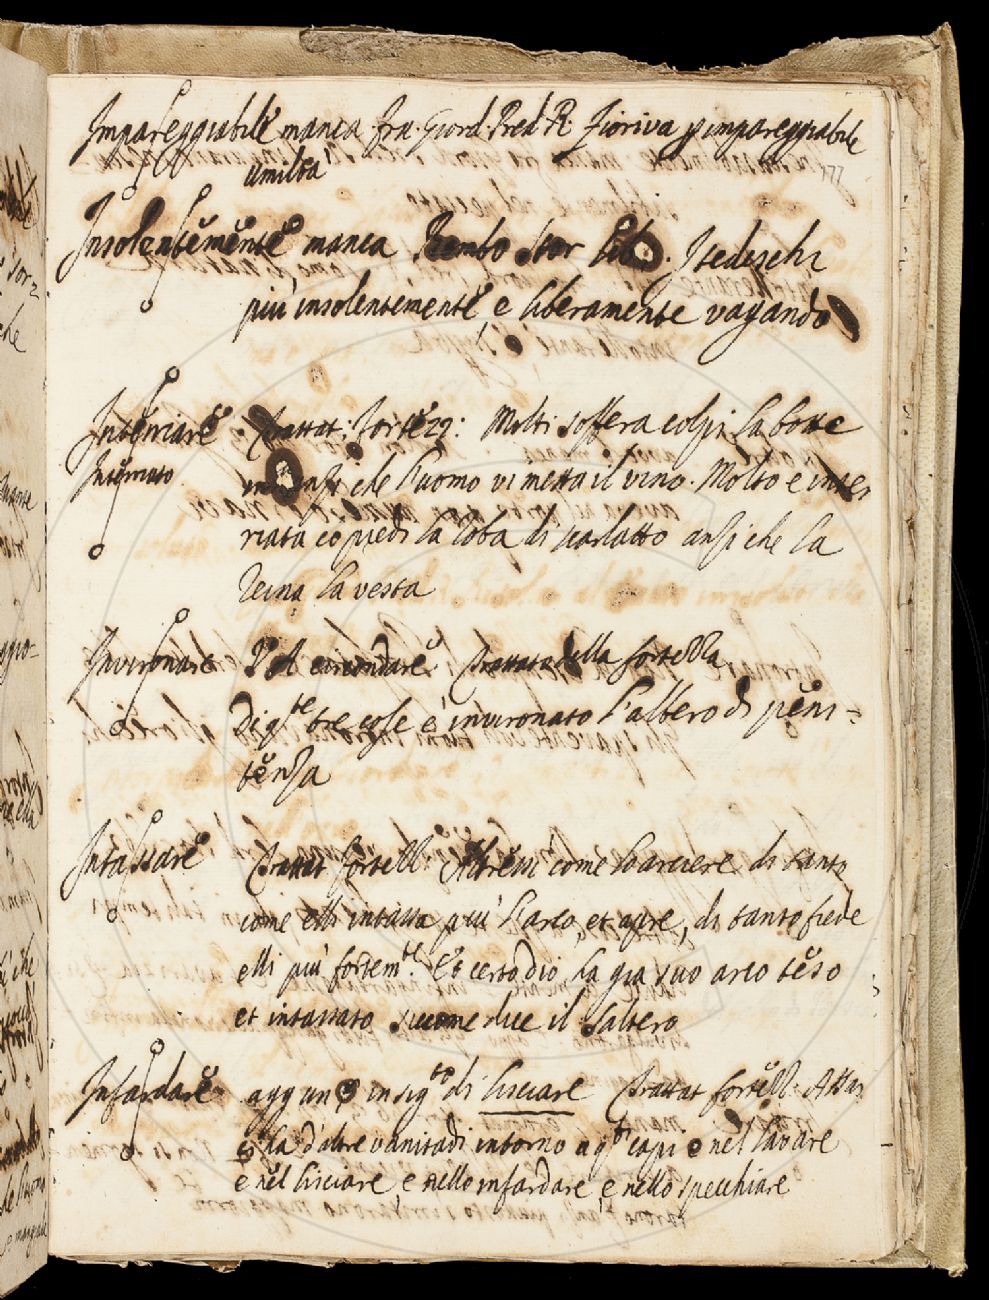 Impareggiabile manca fra. Giord. Pred. R. Fioriva p impareggiabile
umiltà
Insolentemente manca Bembo Stor Lib. I tedeschi
più insolentemente e liberamente vagando
Trattat: Fortezz: Molti soffera colpi la botte
Inteniato
che l'uomo vi metta il vino. Molto è
riata co piedi la roba di scarlatto anzi che la
Reina la vesta
Invironare P A circondare Trattato della fortezza
Di qste tre cose è invironato l'albero di peni-
tenza
Intassare Trattat Fortezz: Altresi come l'arciere di tanto
come elli intassa più l'arco, et apre, di tanto fiede
elli più fortemte. Et certo dio la già suo arco teso
et intassato siccome dice il Saltero
Infardare aggiungi in sigto di lisciare Trattat fortezz:
d'altre vanità di intorno a capi e nel lavare
e nel lisciare, e nello infardare, e nello specchiare